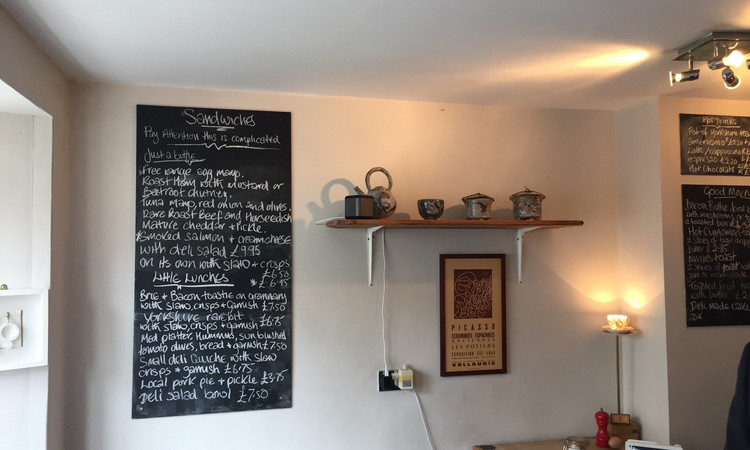 Sandwiches
Pay Attention this is complicated
Just a buttie
Free range egg mayo.
Roast Ham with mustard or
Beetroot chutney.
Tuna mayo, red onion and olives.
Rare Roast Beef and Horseradish
Mature cheddar + pickle.
*Smoked salmon + creamcheese
with deli salad £9.95
on its own with slaw + crisps
£6.50
* £6.95
Little Lunches
Brie + Bacon toastie on granary
with slaw, crisps + garnish £7.50
Yorkshire rarebit
with slaw, crisps + garnish £6.75
Med platter, Hummus, sunblushed
tomato olives, bread + garnish £7.50
Small deli Quiche with slaw
crisps + garnish £6.75
Local pork pie + pickle £3.75
Deli salad bowl £7.50
PICASSO
CERAMIQUES ESTAMPES
ANCIENNES
LES POTIERS
VALLAURIS
Hot Drinks
Pot of Yorkshire tea
americano £2.20
Latte / cappuccino
espresso
Hot Chocolate
Good Mor
Bacon Buttie
a toasted
Hot Cinnamon
toast
Toasted fruit
with butter
Deli made cake